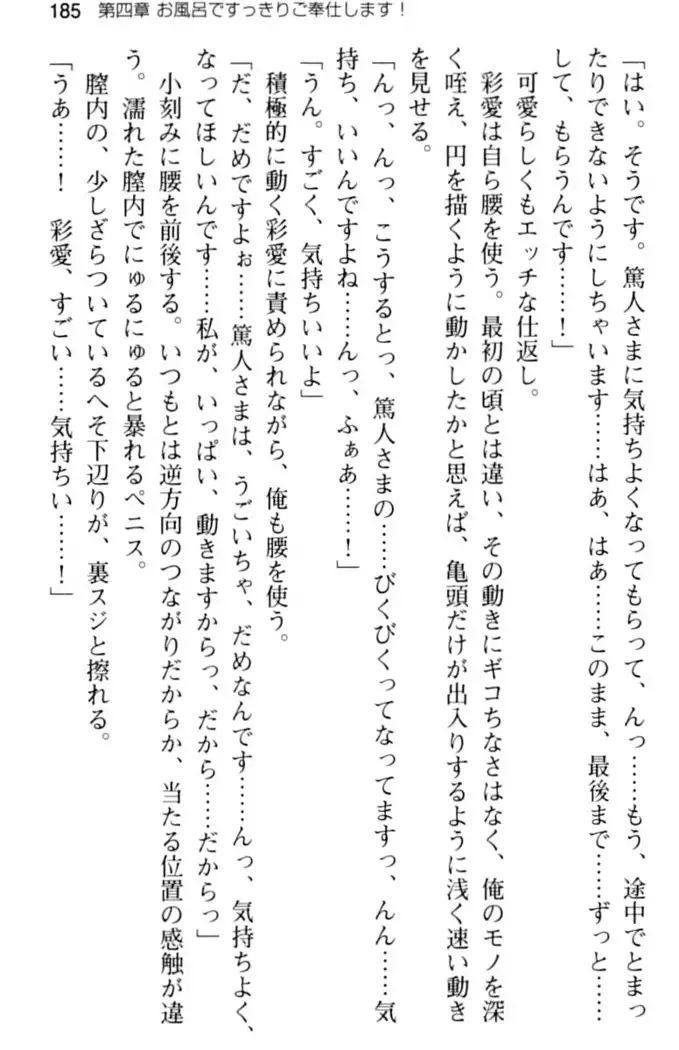 185 第四章 お風呂ですっきりご奉仕します!
「はい。そうです。篤人さまに気持ちよくなってもらって、んっ……もう、途中でとまっ
たりできないようにしちゃいます……はあ、はあ……このまま、最後まで……ずっと……
して、もらうんです……!」
可愛らしくもエッチな仕返し。
彩愛は自ら腰を使う。最初の頃とは違い、その動きにギコちなさはなく、俺のモノを深
く咥え、円を描くように動かしたかと思えば、亀頭だけが出入りするように浅く速い動き
を見せる。
「んっ、んっ、こうするとっ、篤人さまの……びくびくってなってますっ、んん……気
持ち、いいんですよね……んっ、ふぁあ……!」
「うん。すごく、気持ちいいよ」
積極的に動く彩愛に責められながら、俺も腰を使う。
「だ、だめですよぉ……篤人さまは、うごいちゃ、だめなんです……んっ、気持ちよく、
なってほしいんです……私が、いっぱい、動きますからっ、だから……だからっ」
小刻みに腰を前後する。いつもとは逆方向のつながりだからか、当たる位置の感触が違
う。濡れた膣内でにゅるにゅると暴れるペニス。
膣内の、少しざらついているへそ下辺りが、裏スジと擦れる。
「うぁ……! 彩愛、すごい……気持ちい……!」